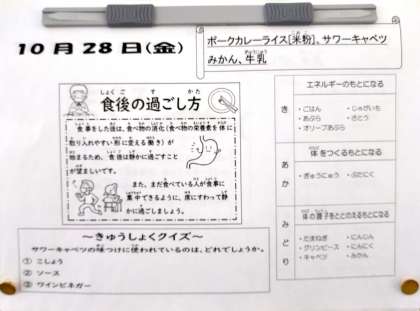 10月28日(金)
ポークカレーライス[米粉]、サワーキャベツ
みかん、牛乳
食後の過ごし方
食事をした後は、食べ物の消化(食べ物の栄養素を体に
取り入れやすい形に変える働き)が
始まるため、食後は静かに過ごすこと
が望ましいです。
また、まだ食べている人が食事に
集中できるように、席にすわって静
かに過ごしましょう。
～きゅうしょくクイズ～
サワーキャベツの味つけに使われているのは、どれでしょうか。
① こしょう
② ソース
③ ワインビネガー
エネルギーのもとになる
き
・ごはん ・じゃがいも
・あぶら ・さとう
・オリーブあぶら
体をつくるもとになる
あか
・ぎゅうにゅう ・ぶたにく
体の調子をととのえるもとになる
みどり
・たまねぎ ・にんじん
・グリンピース ・にんにく
・キャベツ ・みかん